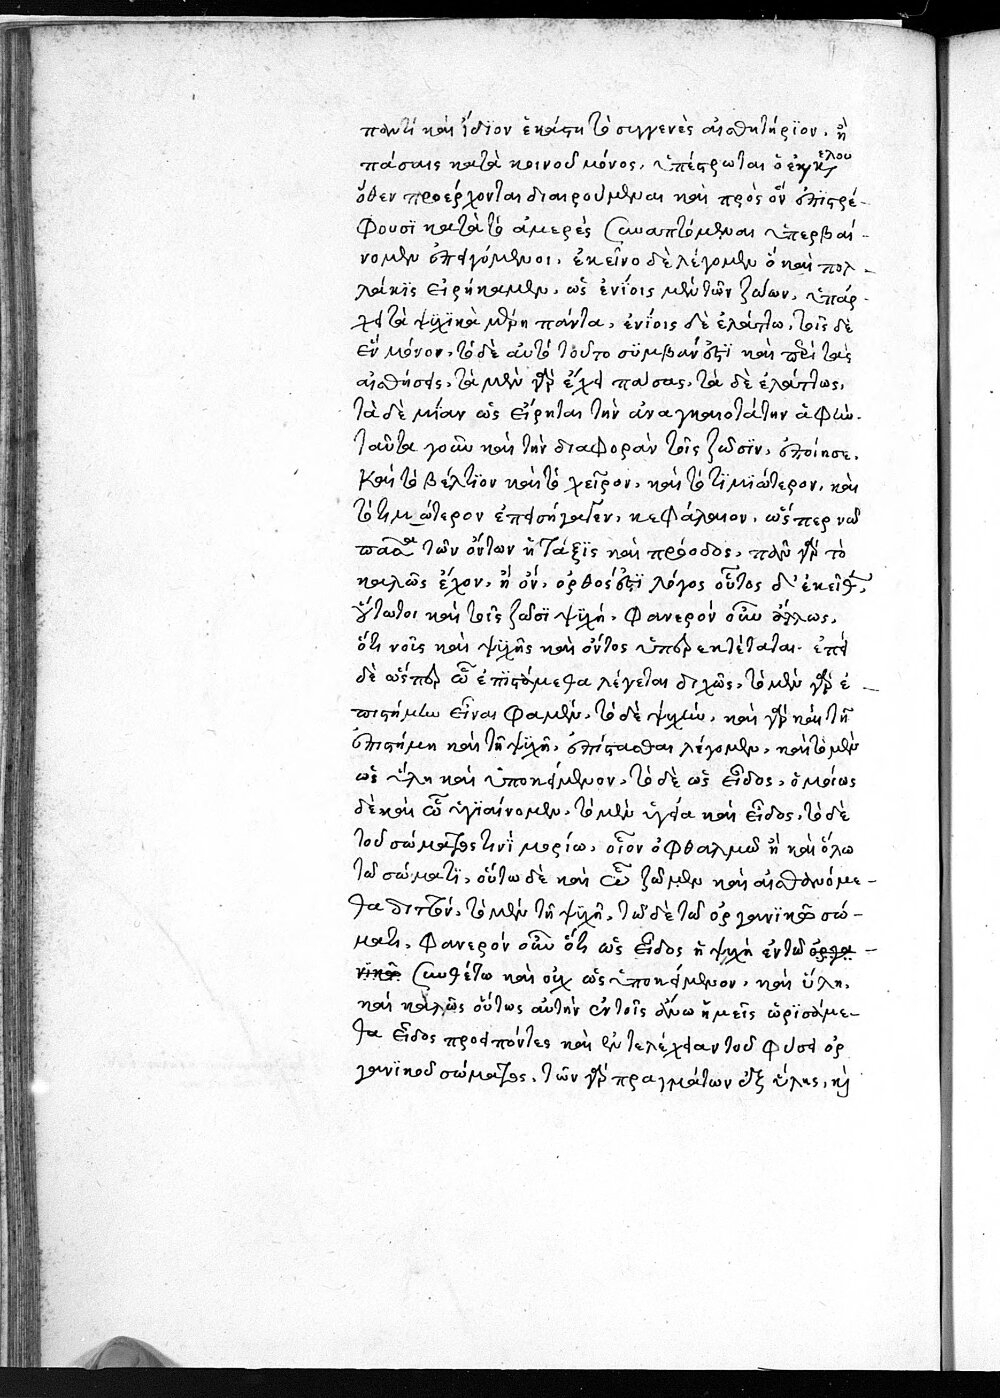 παντὶ καὶ ἴδϊον ἑκάστη τὸ συγγενὲς αἰσθητήρϊον, ἢ
πάσαις κατὰ κοινοῦ μόνος, ὑπέστρωται ὁ ἐγκέλου
ὅθεν προέρχονται διαιρούμεναι καὶ πρὸς ὃν ἐπϊστρέ-
φουσϊ κατὰ τὸ ἀμερὲς συναπτόμεναι ὑπερβαί-
νομεν ἐπαγόμενοι, ἐκεῖνο δὲ λέγομεν ὃ καὶ πολ-
λάκϊς εἰρήκαμεν, ὡς ἐνίοις μὲν τῶν ζώων, ὑπάρ-
χει τὰ ψϋχϊκὰ μέρη πάντα, ἐνίοις δὲ ἐλάττω, τοῖς δὲ
ἓν μόνον, τὸ δὲ αὐτὸ τοῦτο σϋμβαίν ἐστϊ καὶ περὶ τὰς
αἰσθήσεις, τὰ μὲν γὰρ ἔχει πάσας, τὰ δὲ ἐλάττως,
τὰ δὲ μίαν ὡς εἴρηται τὴν ἀναγκαιοτάτην ἁφὴν.
ταῦτα γοῦν καὶ τὴν διαφορὰν τοῖς ζώοϊν, ἐποίησε,
καὶ τὸ βέλτϊον καὶ τὸ χεῖρον, καὶ τὸ τϊμϊώτερον, καὶ
τὸ τιμ ώτερον ἐπεισήγαγεν, κεφάλαιον, ὥσπερ νῦ
πᾶσα τῶν ὄντων ἡ τάξϊς καὶ πρόοδος, πᾶν γὰρ τὸ
καλῶς ἔχον, ἢ ὄν, ὀρθός ἐστϊ λόγος οὗτος δ' ἐκεῖθεν,
καὶ τοῖς ζώοϊ ψϋχή, φανερὸν οὖν ἄλλως,
ὅτι νοῦς καὶ ψϋχῆς καὶ ὄντος ὑπερεκτέταται. ἐπεὶ
δὲ ὥσπερ ᾧ ἐπϊστάμεθα λέγεται διχῶς, τὸ μὲν γὰρ ἐ-
πιστήμην εἶναι φαμὲν, τὸ δὲ ψυχὴν, καὶ γὰρ καὶ τῆ
ἐπιστήμη καὶ τῆ ψϋχῆ, ἐπίστασθαι λέγομεν, καὶ τὸ μὲν
ὡς ὕλη καὶ ὑποκείμενον, τὸ δὲ ὡς εἶδος, ὁμοίως
δὲ καὶ ᾧ ὑγϊαίνομεν, τὸ μὲν ὑγεία καὶ εἶδος, τὸ δὲ
τοῦ σώματος τινϊ μορίω, οἷον ὀφθαλμῶ ἢ καὶ ὅλω
τῶ σώματϊ, οὕτω δὲ καὶ ᾧ ζῶμεν καὶ αἰσθανόμε-
θα διττὸν, τὸ μὲν τῆ ψϋχῆ, τῶ δὲ τῶ ὀργανϊκῶ σώ-
ματι, φανερὸν οὖν ὅτι ὡς εἶδος ἡ ψϋχὴ ἐν τῶ ὀργα-
νϊκῶ συνθέτω καὶ οὐχ ὡς ὑποκείμενον, καὶ ὕλη,
καὶ καλῶς οὕτως αὐτὴν ἐν τοῖς ἄνω ἡμεῖς ὡρϊσάμε-
θα εἶδος προειπόντες καὶ ἐντελέχειαν τοῦ φύσει ὀρ
γανϊκοῦ σώματος, τῶν γὰρ πραγμάτων ἐξ ὕλης, κὶ